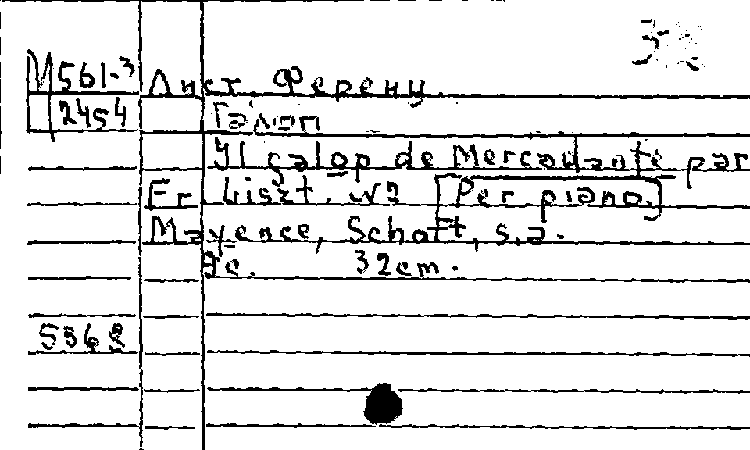 М561-3 Лист. Ференц.
2454 Галоп
Il galop de Mercadante par
Fr Liszt. [Per piano.]
Mayence, Schott, s.a.
9c. 32cm.
5368